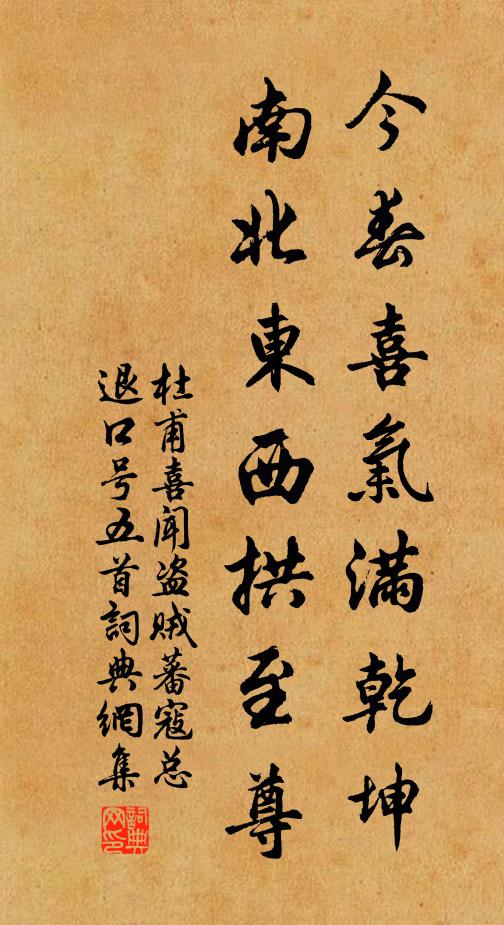 今春喜氣滿乾坤
南北東西拱至尊
杜甫喜闻盗贼蕃寇总
退口号五首詞典網集
詞典
网印